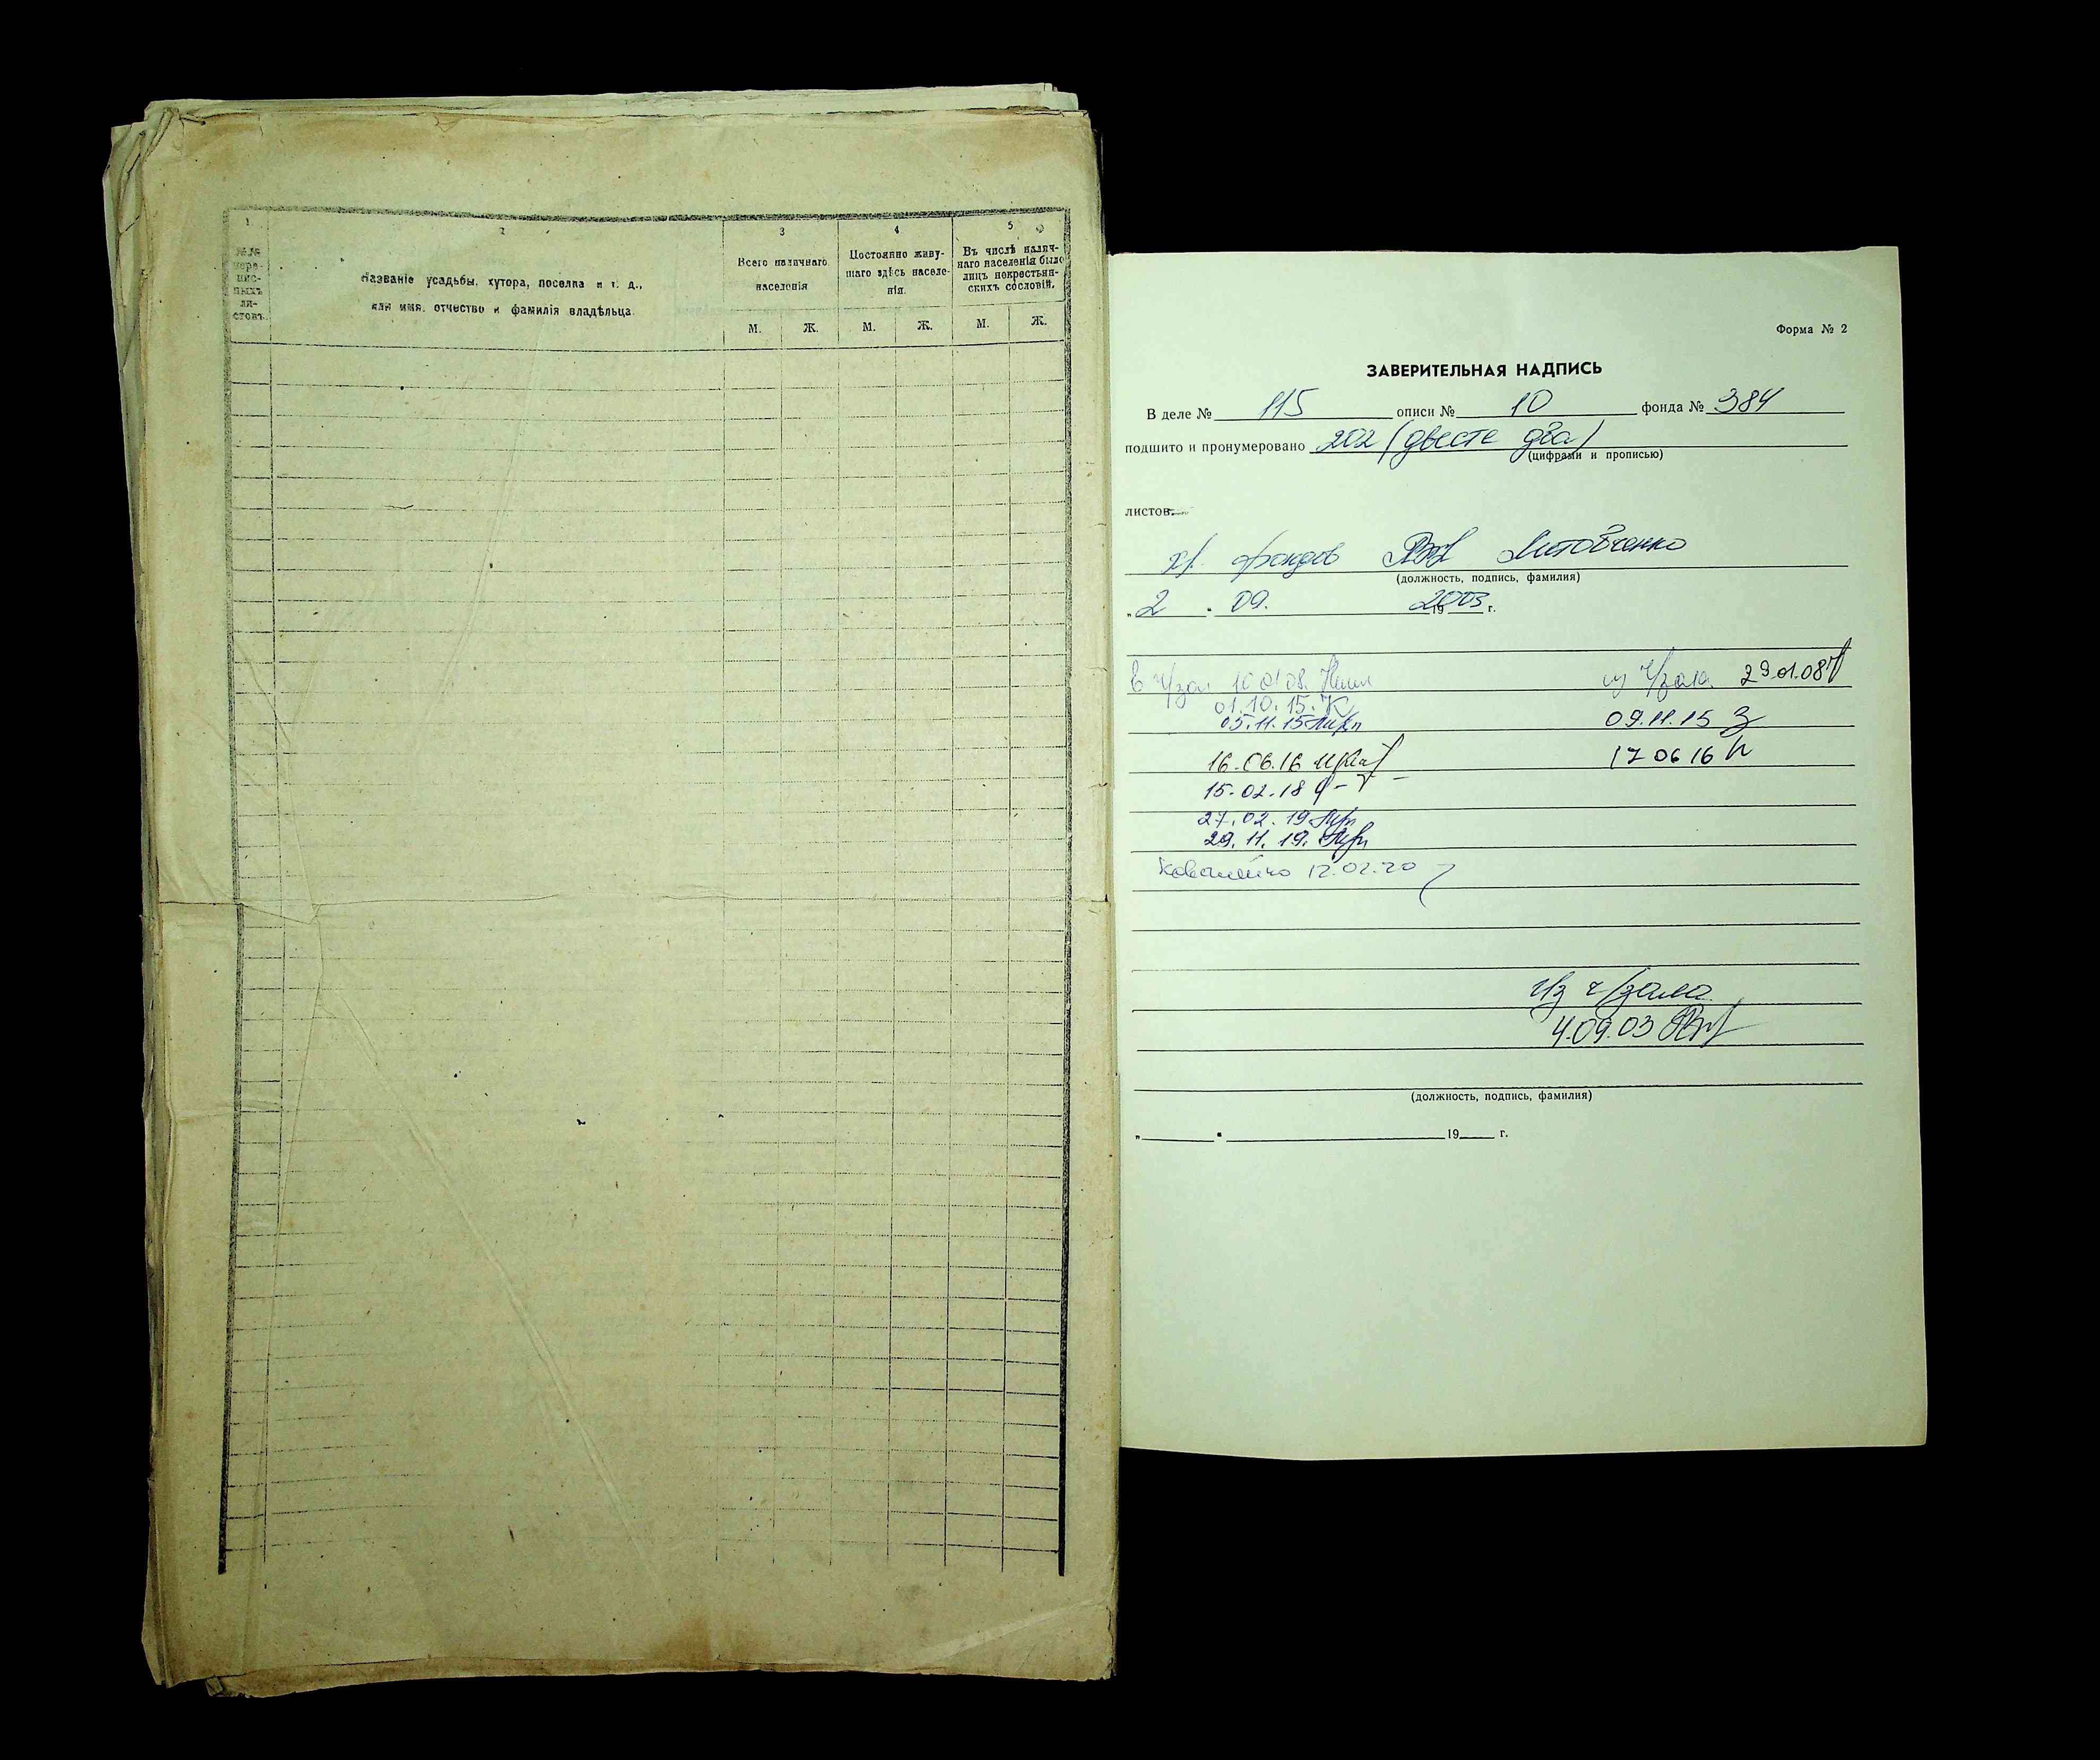 1
2
3
4
5
№№ пере-
пис-
ныхъ
ли-
стовъ.
Названіе усадьбы, хутора, поселка и т. д.,
или имя, отчество и фамилія владѣльца.
Всего наличнаго
населенія
Постоянно живу-
щаго здѣсь населе-
нія.
Въ числѣ налич-
наго населенія было
лицъ некрестьян-
скихъ сословій.
М. Ж. М. Ж. М. Ж.
Форма № 2
ЗАВЕРИТЕЛЬНАЯ НАДПИСЬ
В деле № 115 описи № 10 фонда № 384
подшито и пронумеровано 202 (двести два)
(цифрами и прописью)
листов.
хр. фондов Литовченко
(должность, подпись, фамилия)
„2 " 09. 2003 19 г.
в ч/зал 10.01.08. из ч/зала 29.01.08
01.10.15. К
05.11.15 09.11.15 З
16.06.16 17 06 16
15.02.18
27.02.19
29.11.19.
12.02.20
Из ч/зала
4.09.03
(должность, подпись, фамилия)
„ " 19 г.